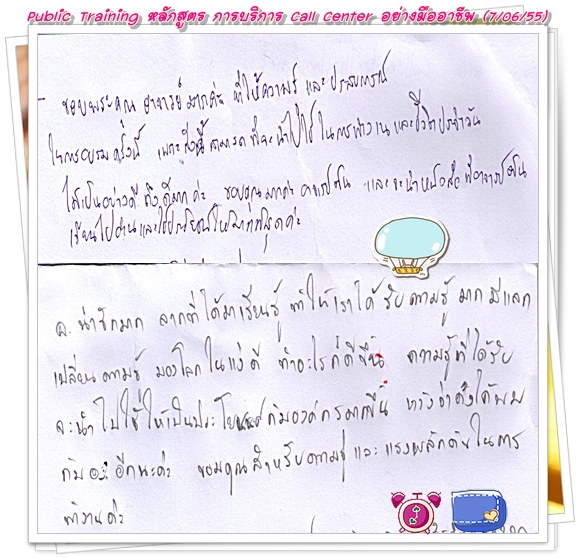 Public Training หลักสูตร การบริการ Call Center อย่างมืออาชีพ (7/06/55)
- ขอบพระคุณ อาจารย์ มากค่ะ ที่ให้ความรู้ และประสบการณ์
ในการอบรมครั้งนี้ เพราะสิ่งนี้สามารถที่จะนำไปใช้ในการทำงานและชีวิตประจำวัน
ได้เป็นอย่างดี ถึงดีมาก ค่ะ ขอบคุณมากค่ะ และจะนำหนังสือที่อาจารย์
เขียนไปอ่านและใช้ประโยชน์ให้มากที่สุดค่ะ
อ. น่ารักมาก จากที่ได้มาเรียนรู้ ทำให้เราได้รับความรู้มาก มีแลก
เปลี่ยนความรู้ มองโลกในแง่ดี ทำอะไรก็ดีขึ้น ความรู้ที่ได้รับ
จะนำไปใช้ให้เป็นประโยชน์กับองค์กรมากขึ้น หวังว่าคงได้พบ
กับอ. อีกนะค่ะ ขอบคุณสำหรับความรู้และแรงผลักดันในการ
ทำงานค่ะ